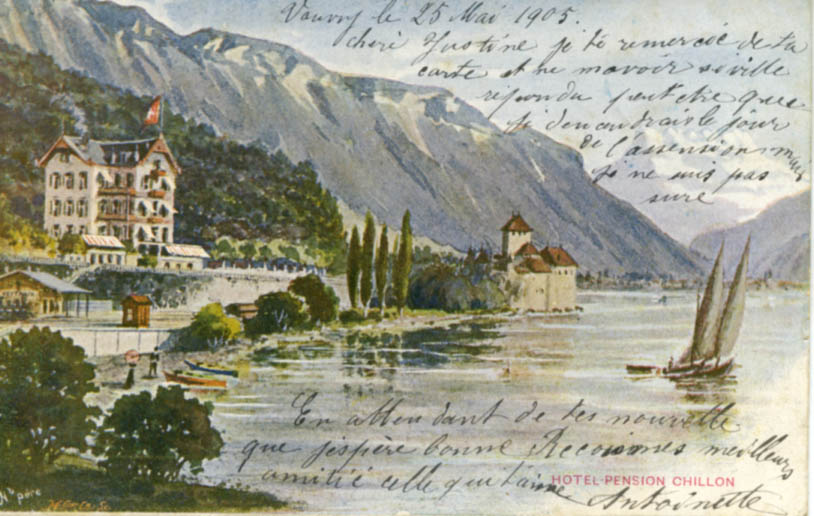 Vouvry le 25 Mai 1905.
cheri Justine je te remercie de ta
carte et ne mavoir si ville
repondu peut etre que
je dendrais le jour
de l'assension mais
je ne suis pas
sure
En attendant de tes nouvelle
que j'espère bonne Recois mes meilleurs
amitié celle qui t'aime
HOTEL-PENSION CHILLON
Antoinette